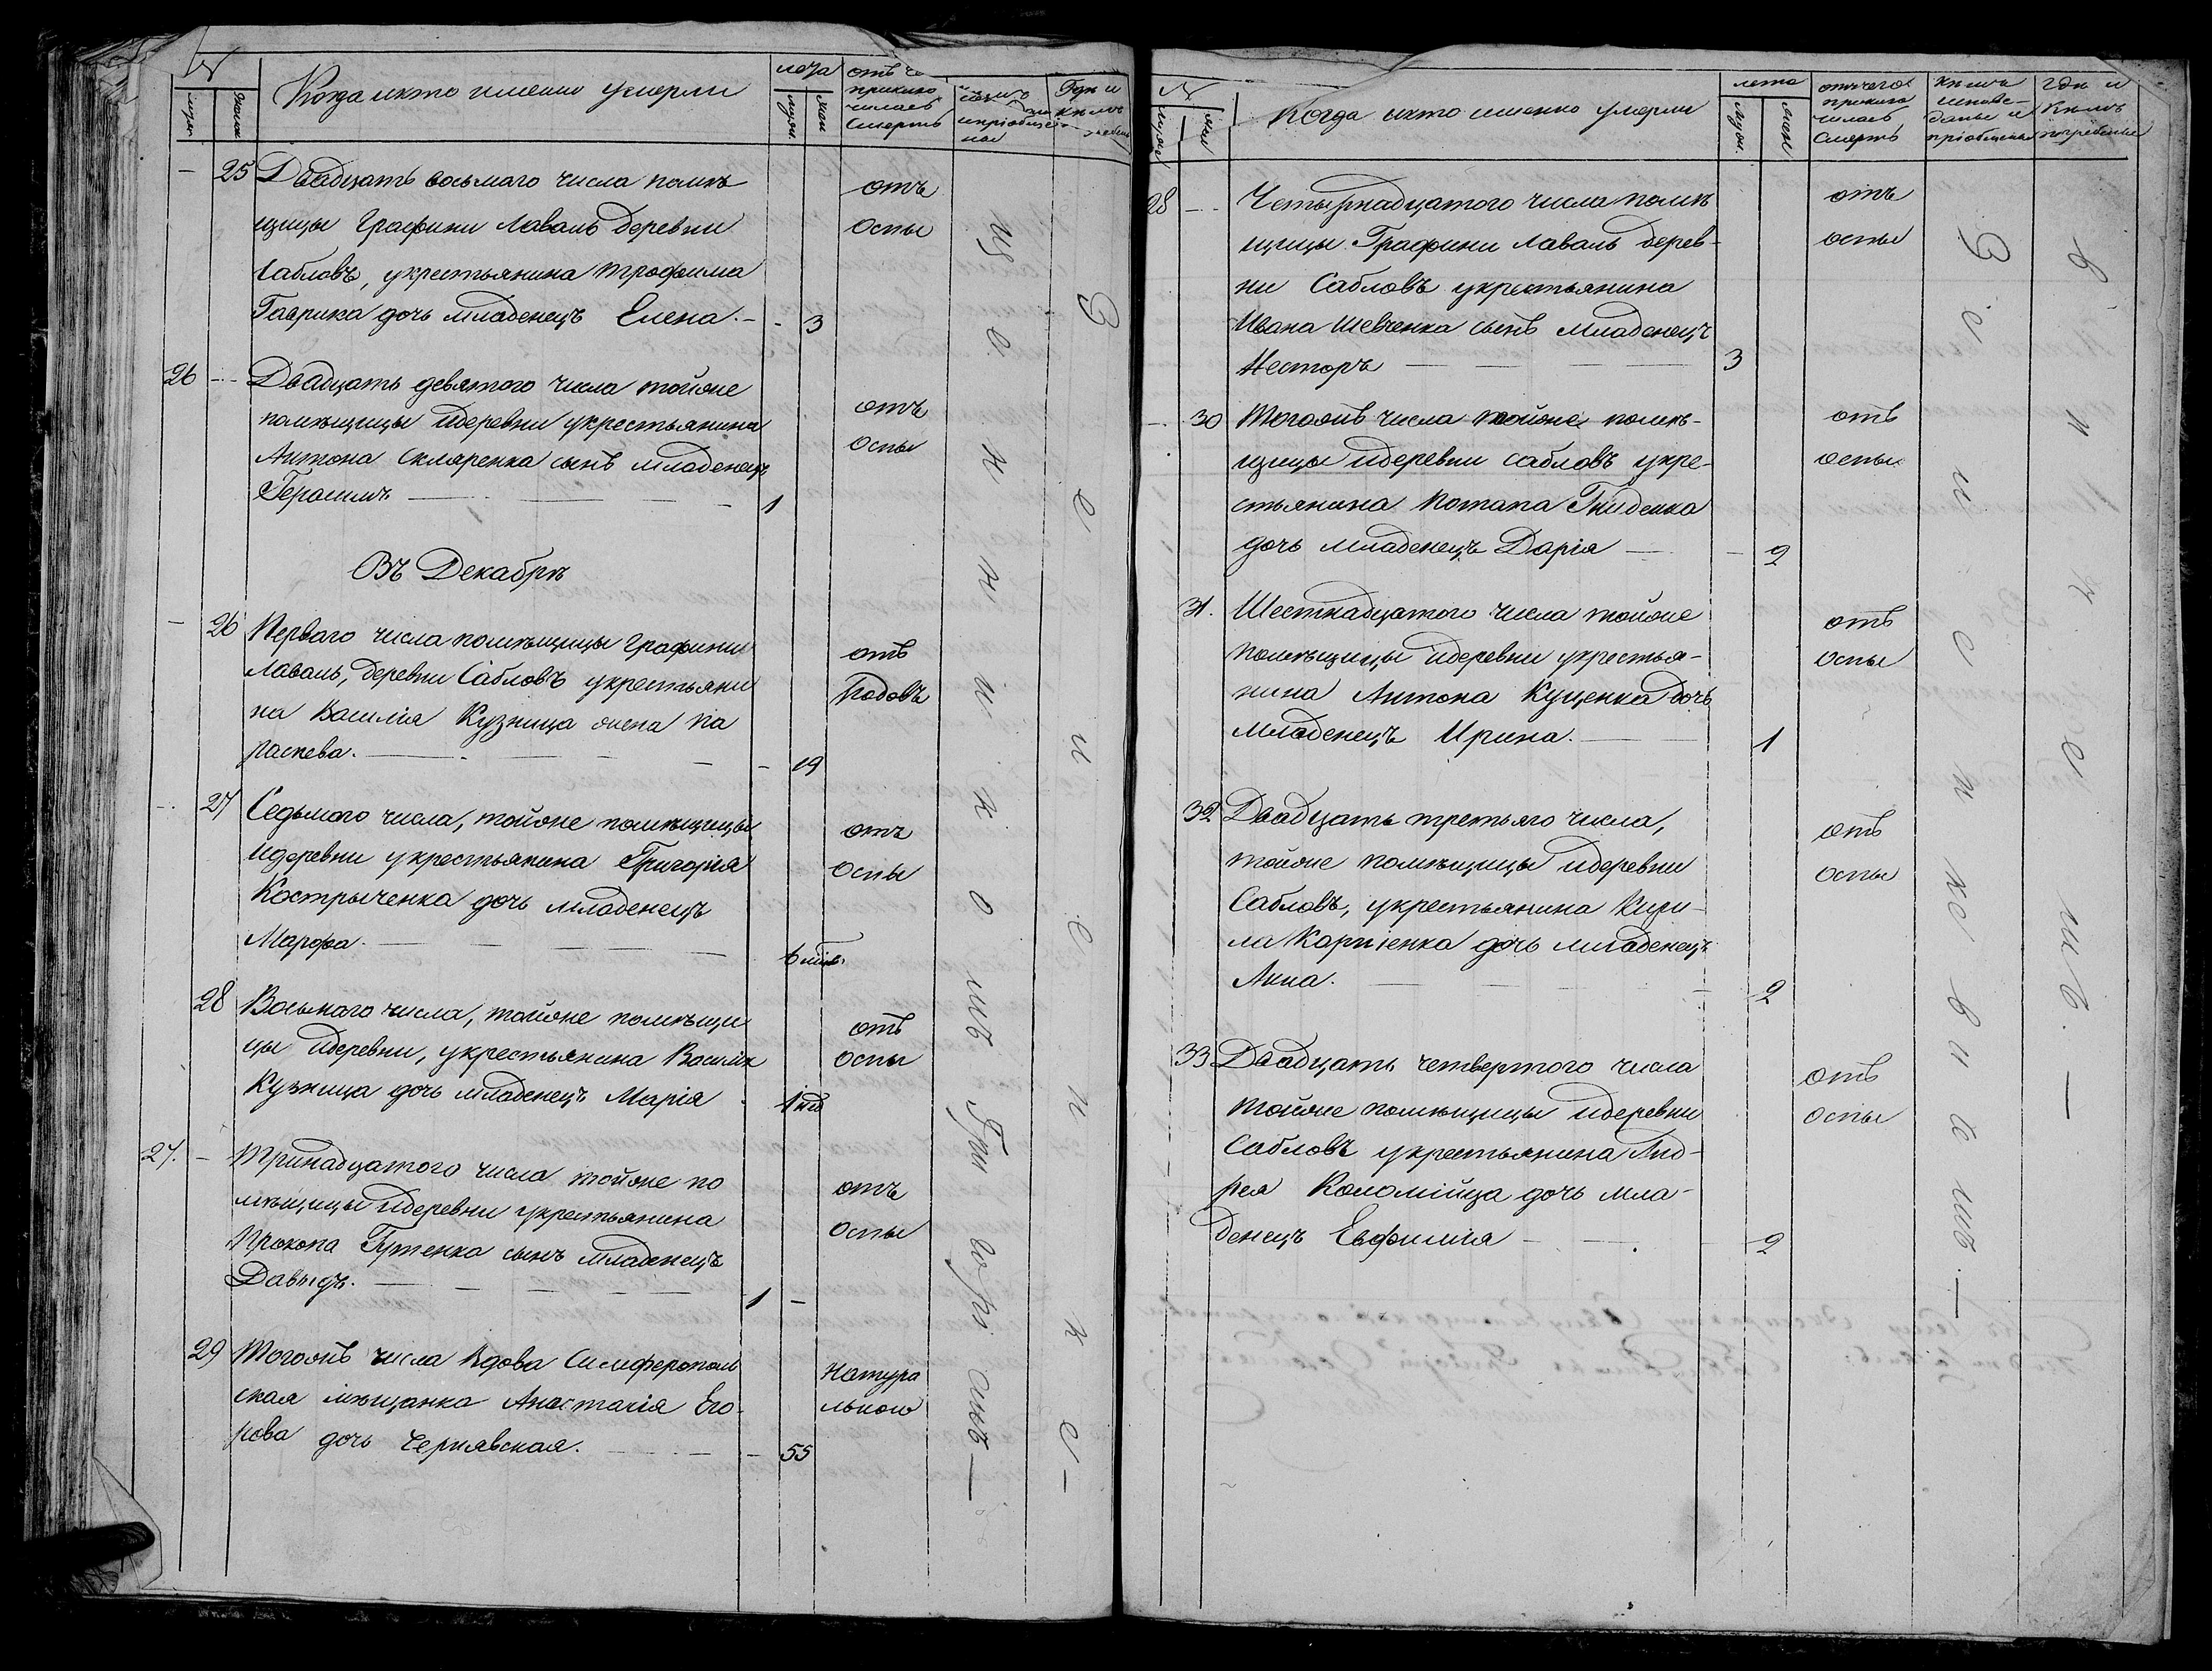 №
Когда икто имено умерли
лета
муж.
жен
отъ че
приклю
чилась
Смерть
Где и
кѣмъ
25 Двадцать восьмаго числа помѣ
щицы Графини Лаваль деревни
Сабловъ, укрестьянина Трофима
Гаврика дочь младенецъ Елена. 3
отъ
оспы
26 Двадцать девятого числа тойже
помѣщицы идеревни укрестьянина
Антона Скляренка сынъ младенецъ
Герасимъ 1
отъ
оспы
Въ Декабрѣ
26 Перваго числа помѣщицы Графини
Лаваль, деревни Сабловъ укрестьяни
на Василія Кузница жена Па
раскева. 19
отъ
Родовъ
27 Седьмого числа, тойже помѣщицы
идеревни укрестьянина Григорія
Костырченка дочь младенецъ
Марфа. 6
отъ
оспы
28 Восьмаго числа, тойже помѣщи
цы идеревни, укрестьянина Василія
Кузница дочь младенецъ Марія 1
отъ
оспы
27. Тринадцатого числа тойже по
мѣщицы идеревни укрестьянина
Прокопа Гутенка сынъ младенецъ
Давыдъ. 1
отъ
оспы
29 Тогожъ числа Вдова Симферополь
ская мѣщанка Анастасія Его
рова дочь Чернявская. 55
Натура
льною
Священникомъ Григоріемъ
№
Когда икто именно умерли
лета
муж.
жен
отъчего
приклю
чилась
Смерть
кѣмъ
исповѣ-
даны и
пріобщены
гдѣ и
кѣмъ
погребены
28 Четырнадцатого числа помѣ
щицы Графини Лаваль дерев-
ни Сабловъ укрестьянина
Ивана Шевченка сынъ младенецъ
Несторъ 3
отъ
оспы
30 Тогожъ числа тойже помѣ-
щицы идеревни Сабловъ укре-
стьянина Потапа Гниденка
дочь младенецъ Дарія 2
отъ
оспы
31. Шестнадцатого числа тойже
помѣщицы идеревни укрестья-
нина Антона Куценка дочь
младенецъ Ирина. 1
отъ
оспы
32 Двадцать третьяго числа,
тойже помѣщицы идеревни
Сабловъ, укрестьянина Кири-
ла Карпенка дочь младенецъ
Анна. 2
отъ
оспы
33 Двадцать четвертого числа
тойже помѣщицы идеревни
Сабловъ укрестьянина Анд-
рея Коломійца дочь мла-
денецъ Евфимія 2
отъ
оспы